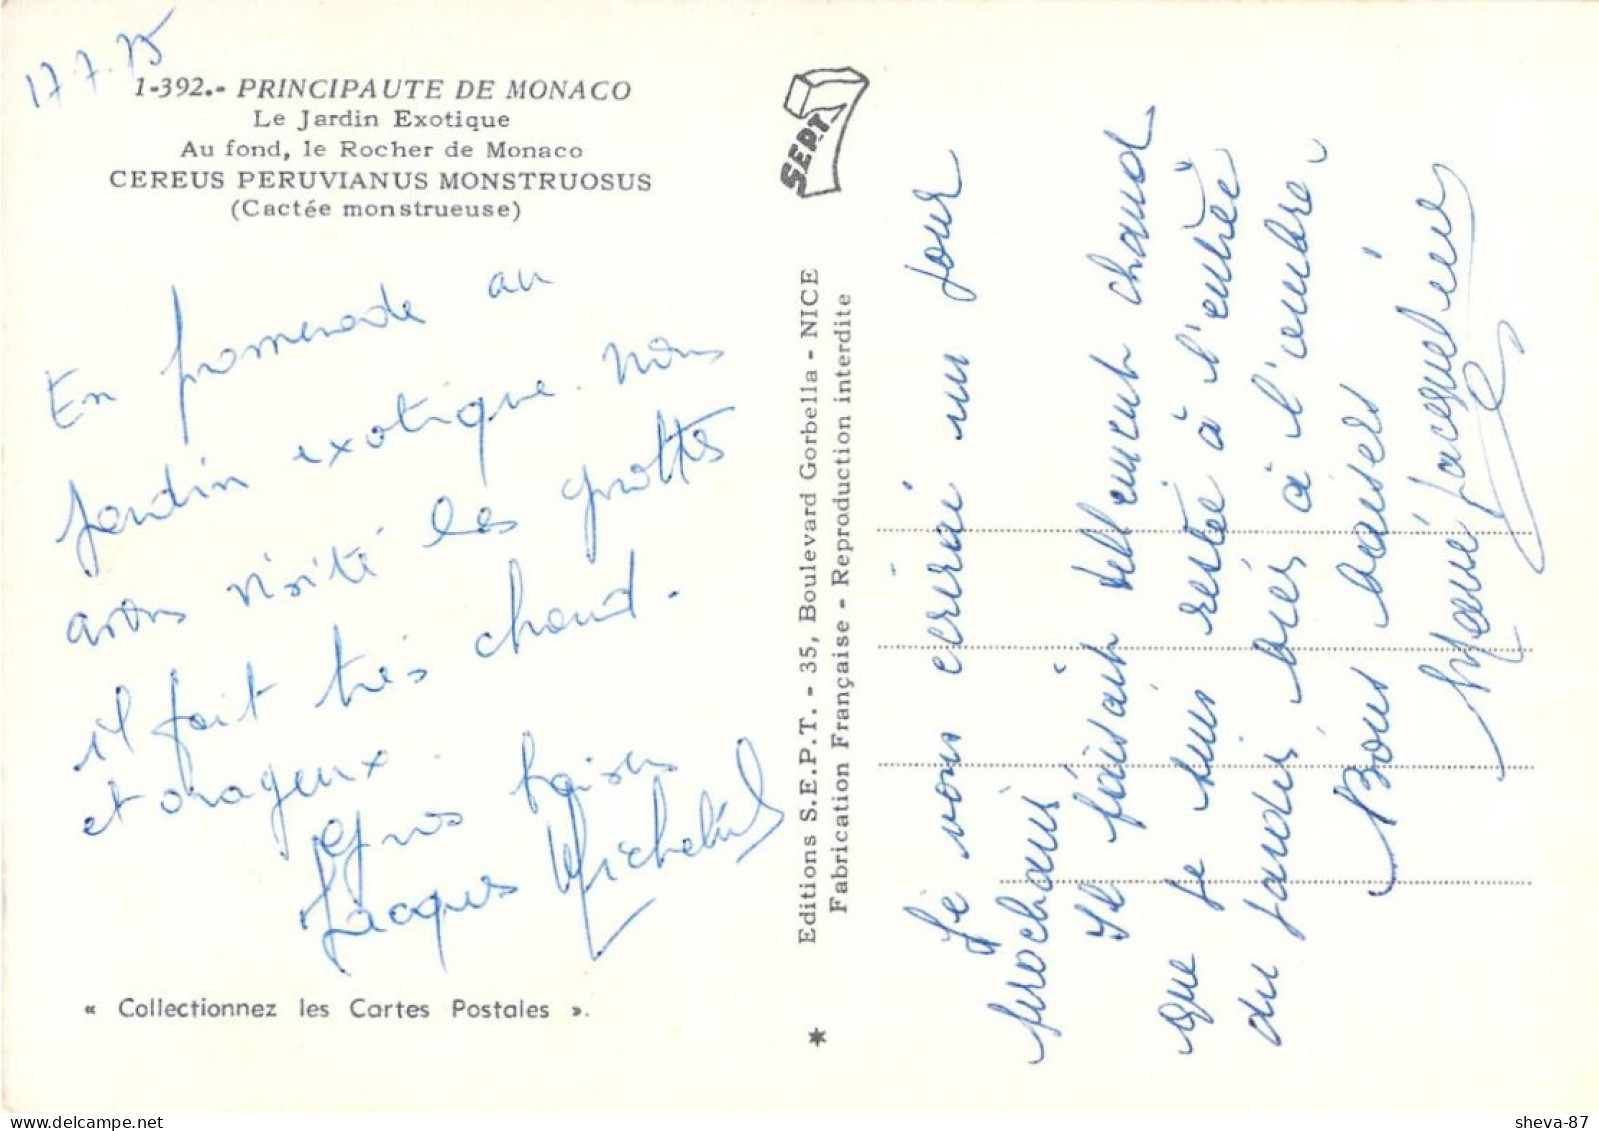 17.7.75
1-392.- PRINCIPAUTE DE MONACO
Le Jardin Exotique
Au fond, le Rocher de Monaco
CEREUS PERUVIANUS MONSTRUOSUS
(Cactée monstrueuse)
En promenade au
jardin exotique. Nous
avons visité les grottes
il fait très chaud.
et orageux.
Gros baisers
Jacques Micheline
« Collectionnez les Cartes Postales ».
SEPT. 7
Editions S.E.P.T. - 35, Boulevard Gorbella - NICE
Fabrication Française - Reproduction interdite
*
Je vous ecrirai un jour
prochain
Il faisait tellement chaud
que je suis restée à l'entrée
du jardin bien à l'ombre.
Bons baisers
Jacqueline
sheva-87